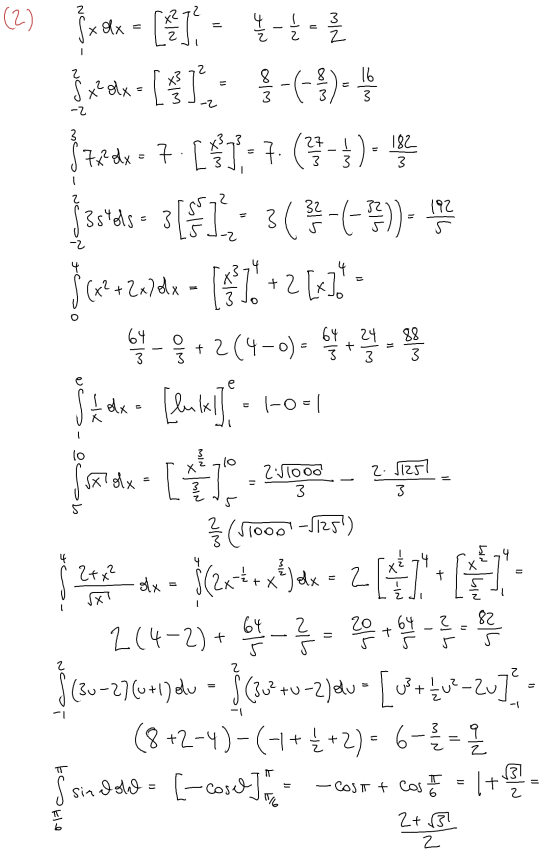 (2) ∫₁² x dx = [x²/2]₁² = 4/2 − 1/2 = 3/2
∫₋₂² x² dx = [x³/3]₋₂² = 8/3 − (−8/3) = 16/3
∫₁³ 7x² dx = 7 · [x³/3]₁³ = 7 · (27/3 − 1/3) = 182/3
∫₋₂² 3s⁴ ds = 3 [s⁵/5]₋₂² = 3 ( 32/5 − (−32/5)) = 192/5
∫₀⁴ (x² + 2x) dx = [x³/3]₀⁴ + 2 [x]₀⁴ =
64/3 − 0/3 + 2 (4 − 0) = 64/3 + 24/3 = 88/3
∫₁ᵉ 1/x dx = [ln|x|]₁ᵉ = 1 − 0 = 1
∫₅¹⁰ √x dx = [x^(3/2)/(3/2)]₅¹⁰ = 2·√1000/3 − 2·√125/3 =
2/3 (√1000 − √125)
∫₁⁴ (2+x²)/√x dx = ∫₁⁴ (2x^(−1/2) + x^(3/2)) dx = 2 [x^(1/2)/(1/2)]₁⁴ + [x^(5/2)/(5/2)]₁⁴ =
2 (4 − 2) + 64/5 − 2/5 = 20/5 + 64/5 − 2/5 = 82/5
∫₋₁² (3u − 2)(u+1) du = ∫₋₁² (3u² + u − 2) du = [u³ + 1/2 u² − 2u]₋₁² =
(8 + 2 − 4) − (−1 + 1/2 + 2) = 6 − 3/2 = 9/2
∫_(π/6)^π sin ϑ dϑ = [−cos ϑ]_(π/6)^π = −cos π + cos π/6 = 1 + √3/2 =
(2 + √3)/2